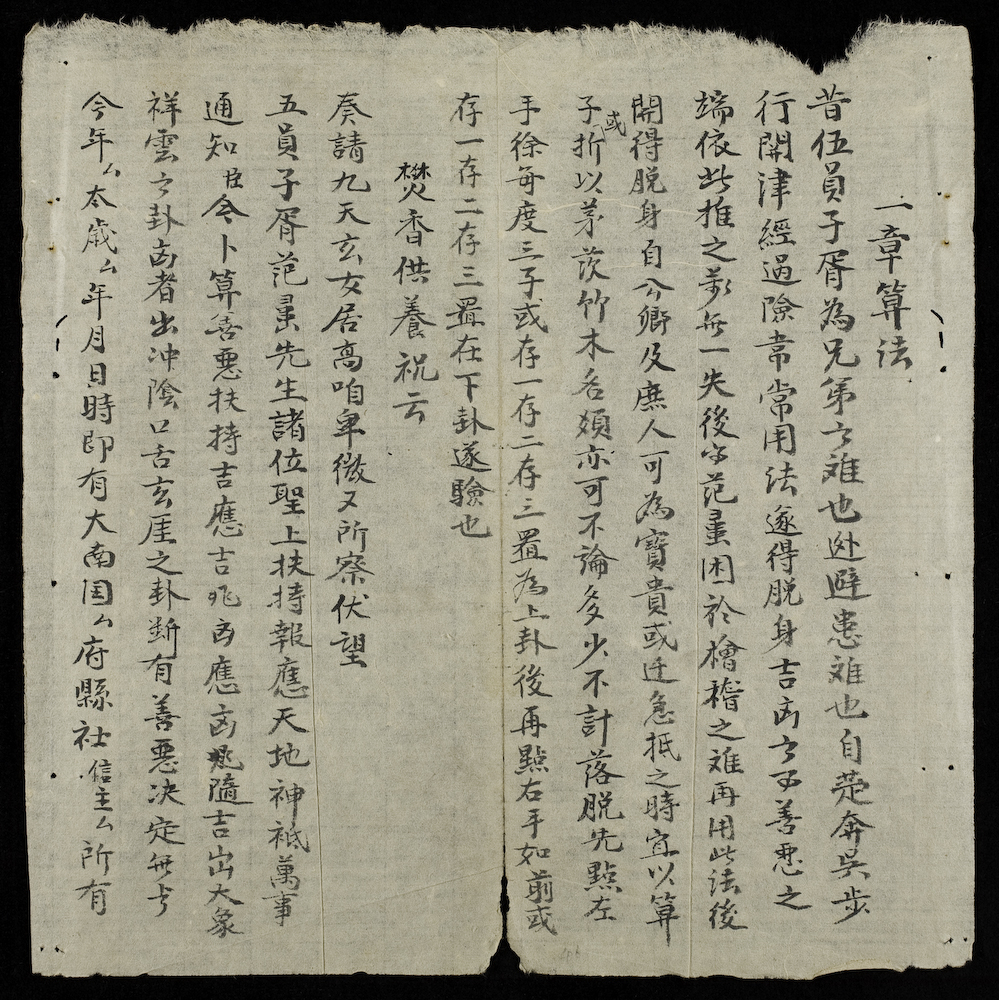 一章算法
昔伍員子胥為兄弟之难也迯避患难也自楚奔吳步
行關津經過險常常用法遂得脱身吉凶之可善惡之
端依此推之萬無一失後范蠡困於檜稽之难再用此法後
開得脱身自公卿及庶人可為寶貴或迁急抵之時宜以算
子或折以茅茨竹木各類亦可不論多少不計落脱先點左
手徐每度三子或存一存二存三置為上卦後再點右手如前或
存一存二存三置在下卦遂驗也
焚香供養祝云
奏請九天玄女居高咱卑微又所察伏望
五員子胥范蠡先生諸位聖上扶持報應天地神祇萬事
通知臣今卜算善惡扶持吉應吉兆凶應凶兆隨吉出大象
祥雲之卦凶者出冲陰口舌玄厓之卦断有善惡决定無亏
今年厶太歲厶年月日時即有大南国厶府縣社信主厶所有